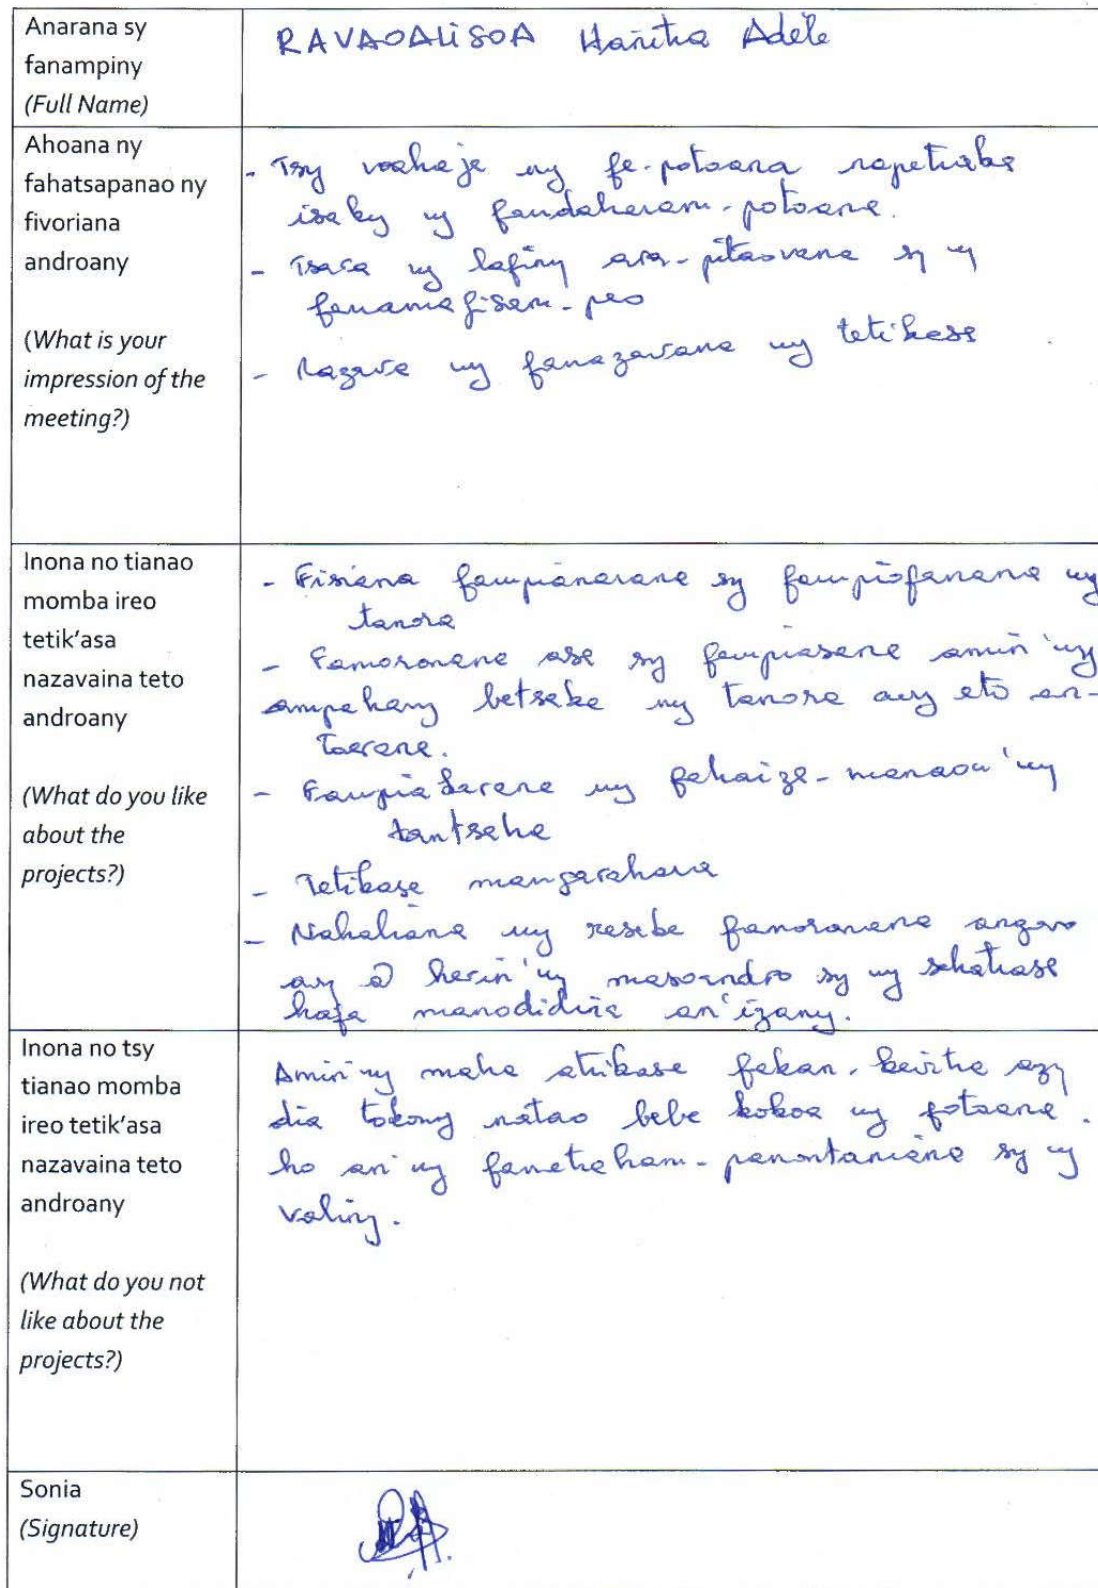 Anarana sy
fanampiny
(Full Name)
RAVAOALISOA Hanitra Adèle
Ahoana ny
fahatsapanao ny
fivoriana
androany
(What is your
impression of the
meeting?)
- Tsy voahaja ny fe-potoana napetraka
isaky ny fandaharam-potoana.
- Tsara ny lafiny ara-pitaovana sy ny
fanamafisam-peo
- Nazava ny fanazavana ny tetikasa
Inona no tianao
momba ireo
tetik'asa
nazavaina teto
androany
(What do you like
about the
projects?)
- Fisiana fampianarana sy fampiofanana ny
tanora
- Famoronana asa sy fampiasana amin'ny
ampahany betsaka ny tanora avy eto an-
Toerana.
- Fampiatarana ny fahaiza-manaon'ny
tantsaha
- Tetikasa mangarahara
- Nahaliana ny resaka famoronana angovo
avy @ herin'ny masoandro sy ny sehatrasa
hafa manodidina an'izany.
Inona no tsy
tianao momba
ireo tetik'asa
nazavaina teto
androany
(What do you not
like about the
projects?)
Amin'ny maha atrikasa fakan-kevitra azy
dia tokony natao bebe kokoa ny fotoana
ho an'ny fametraham-panontaniana sy ny
valiny.
Sonia
(Signature)